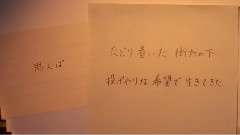 思えば
たどり着いた 街灯の下
投げやりな希望で生きてきた